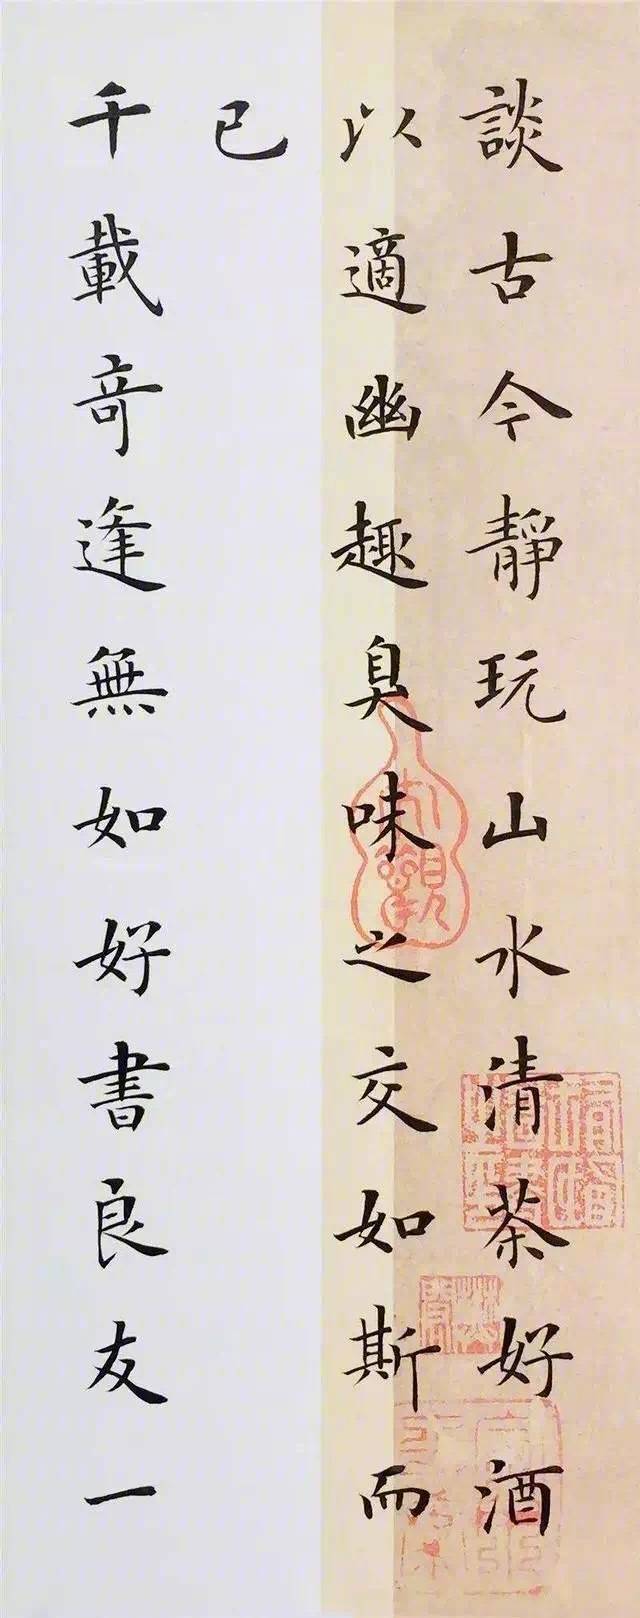 談古今靜玩山水清茶好酒
以適幽趣臭味之交如斯而
已
千載奇逢無如好書良友一